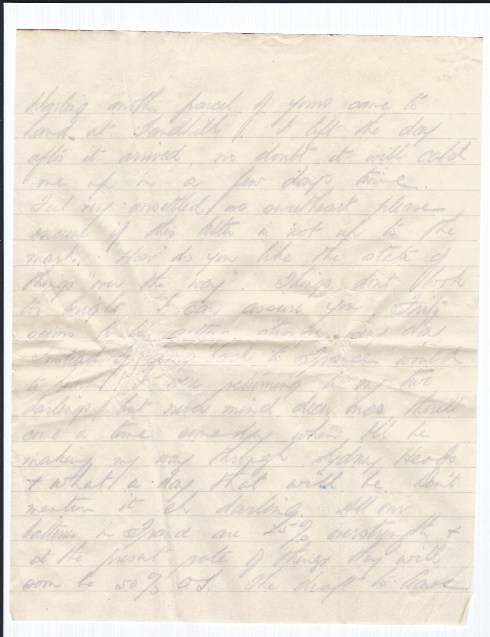 Darling another parcel of yours came to
hand at Sandhill. I left the day
after it arrived, no doubt it will catch
me up in a few days time.
Feel very unsettled so sweetheart please
excuse if this letter is not up to the
mark. How do you like the state of
things "over the way". Things don't look
to bright I can assure you. Fritz
seems to be getting stronger every day
Instead of going back to France would
to I were returning to my two
darlings but never mind dear ones there'll
come a time someday when I'll be
making my way through Sydney Heads
& what a day that will be. Don't
mention it eh darling. All our
batteries in France are 25% overstrength &
at the present rate of things they will
soon be 50% O.S. The draft to leave